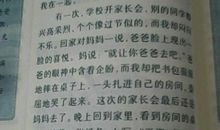 我在一起。
有一次，学校开家长会，别的同学都
兴高采烈，个个像过节似的，而我却闷闷
不乐。回家对妈妈一说，爸爸脸上现出一
脸的喜悦。妈说："就让你爸去吧。"爸
爸的眼神中含着企盼，而我却把书包狠狠
地摔在桌子上，一头扎进自己的房间，委
屈地哭了起来。这次的家长会最后还是
妈妈去了。晚上回到家里，看到房间